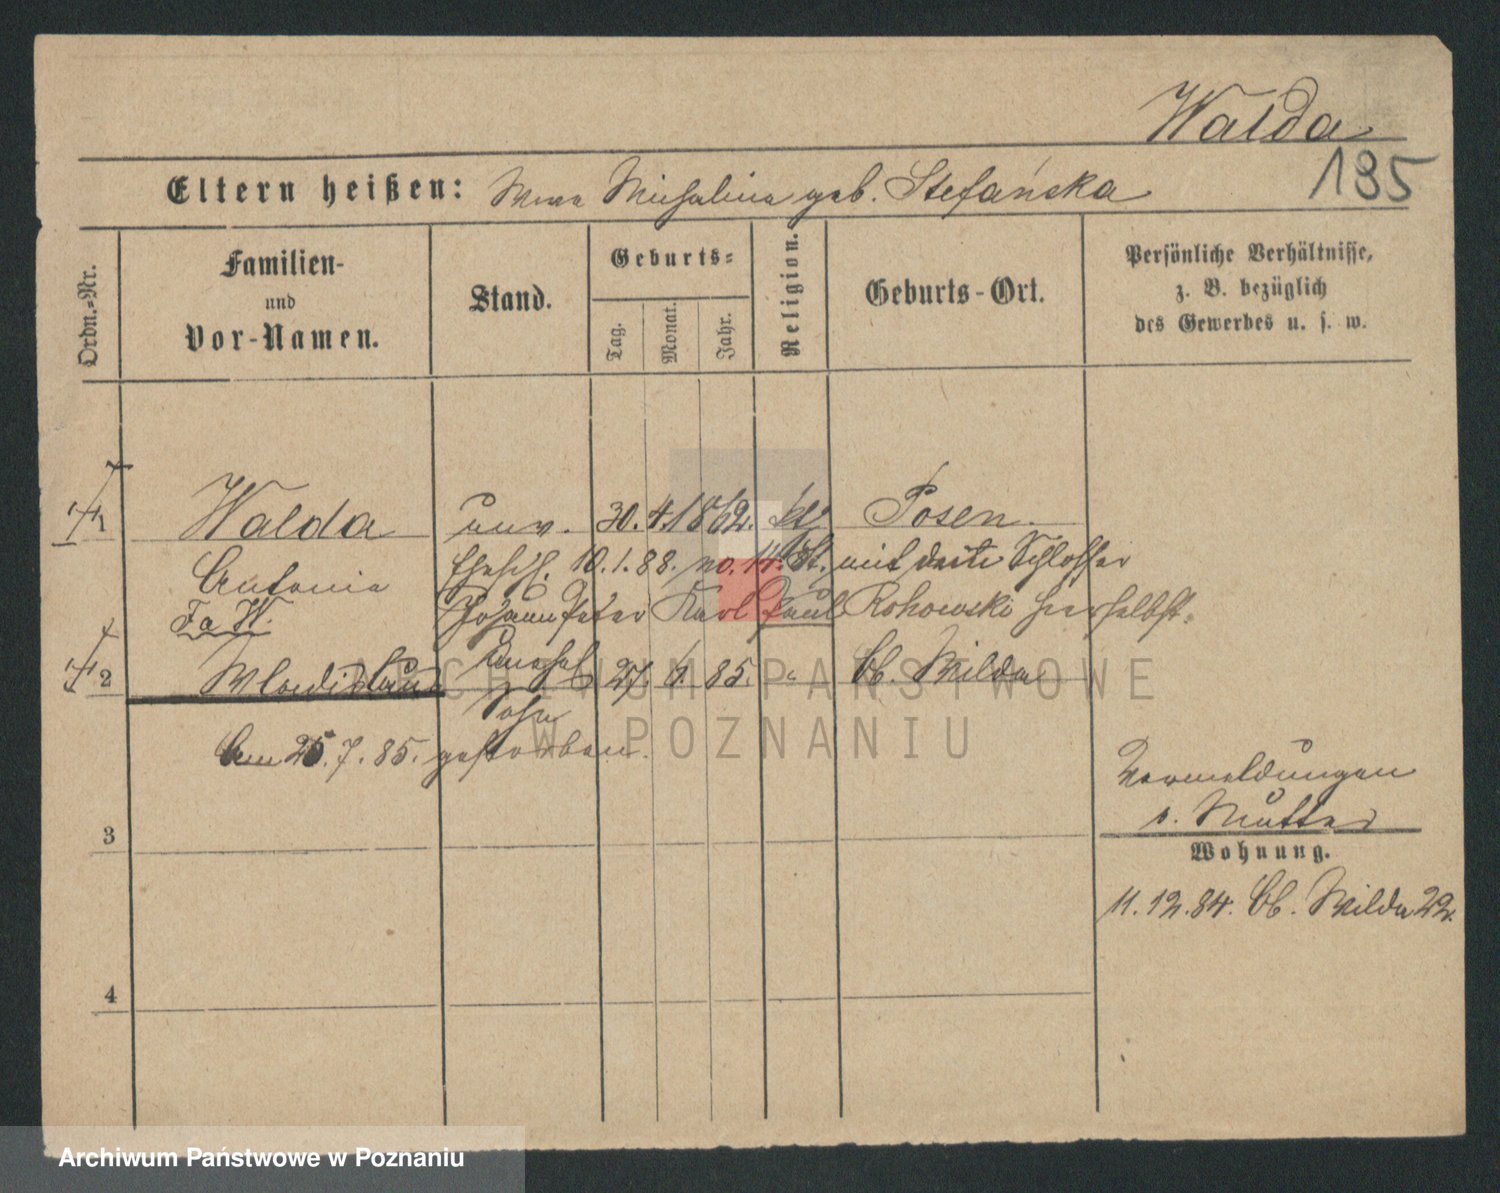 Walda
185
Eltern heißen: Wwe Michalina geb. Stefańska
Ordn.-Nr.
Familien-
und
Vor-Namen.
Stand.
Geburts-
Tag.
Monat.
Jahr.
Religion.
Geburts-Ort.
Persönliche Verhältnisse,
z. B. bezüglich
des Gewerbes u. s. w.
1 Walda unv. 30. 4. 1862. kt. Posen.
Antonia Ehesch. 10.1.88. No. 14. St. mit dem Schlosser
Johann Peter Karl Paul Rohowski hierselbst.
2 Wladislaus unehel. 27. 6. 85. " Ob. Wilda
Sohn
Am 25.7.85. gestorben.
Vermeldungen
s. Mutter
3
Wohnung.
11.12.84. Ob. Wilda 22.
4
ARCHIWUM PAŃSTWOWE
W POZNANIU
Archiwum Państwowe w Poznaniu